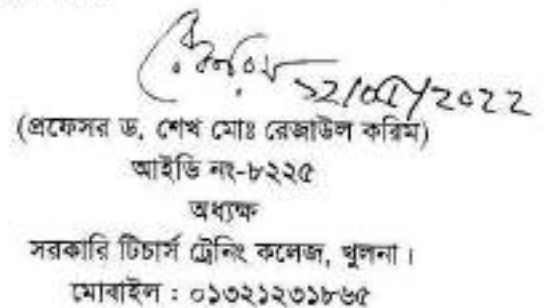 (প্রফেসর ড. শেখ মোঃ রেজাউল করিম)
আইডি নং-৮২২৫
অধ্যক্ষ
সরকারি টিচার্স ট্রেনিং কলেজ, খুলনা।
মোবাইল : ০১৩২১২৩১৮৬৫